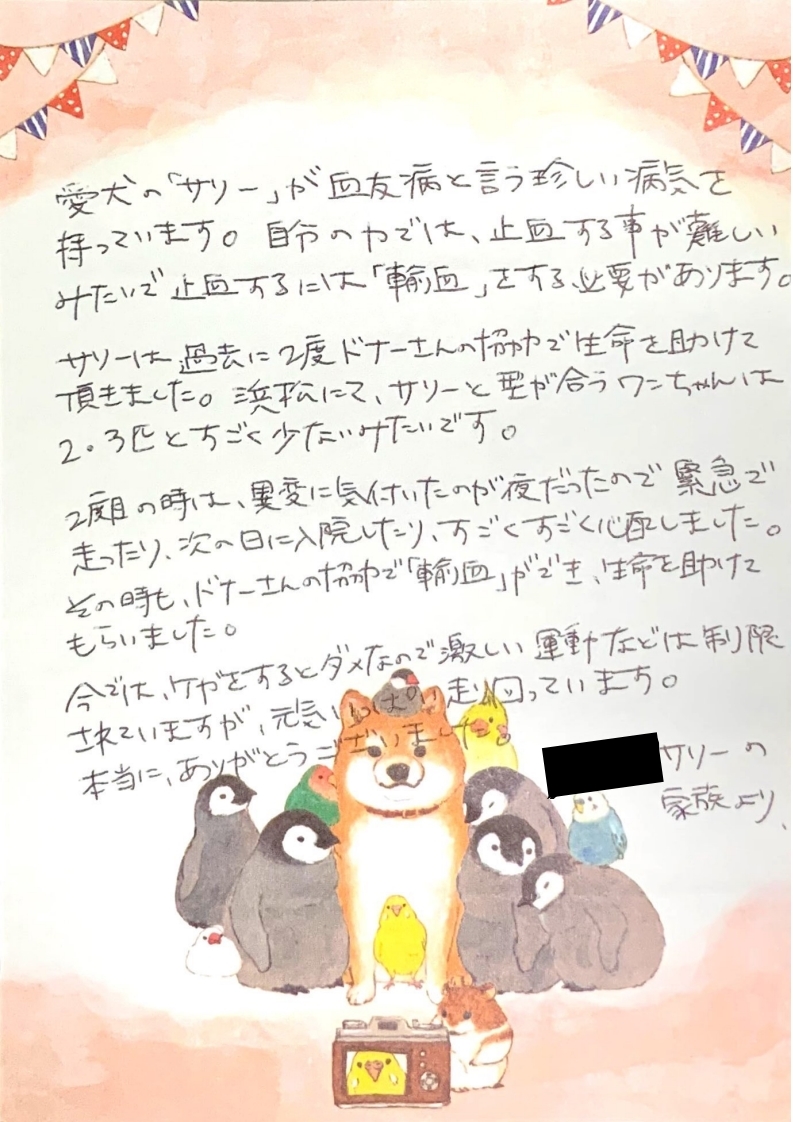 愛犬の「サリー」が血友病と言う珍しい病気を
持っています。自分の力では、止血する事が難しい
みたいで止血するには「輸血」をする必要があります。
サリーは過去に2度ドナーさんの協力で生命を助けて
頂きました。浜松にて、サリーと型が合うワンちゃんは
2.3匹とすごく少ないみたいです。
2度目の時は、異変に気付いたのが夜だったので緊急で
走ったり、次の日に入院したり、すごくすごく心配しました。
その時も、ドナーさんの協力で「輸血」ができ、生命を助けて
もらいました。
今では、ケガをするとダメなので激しい運動などは制限
されていますが、元気いっぱい走り回っています。
本当に、ありがとうございました。
サリーの
家族より、